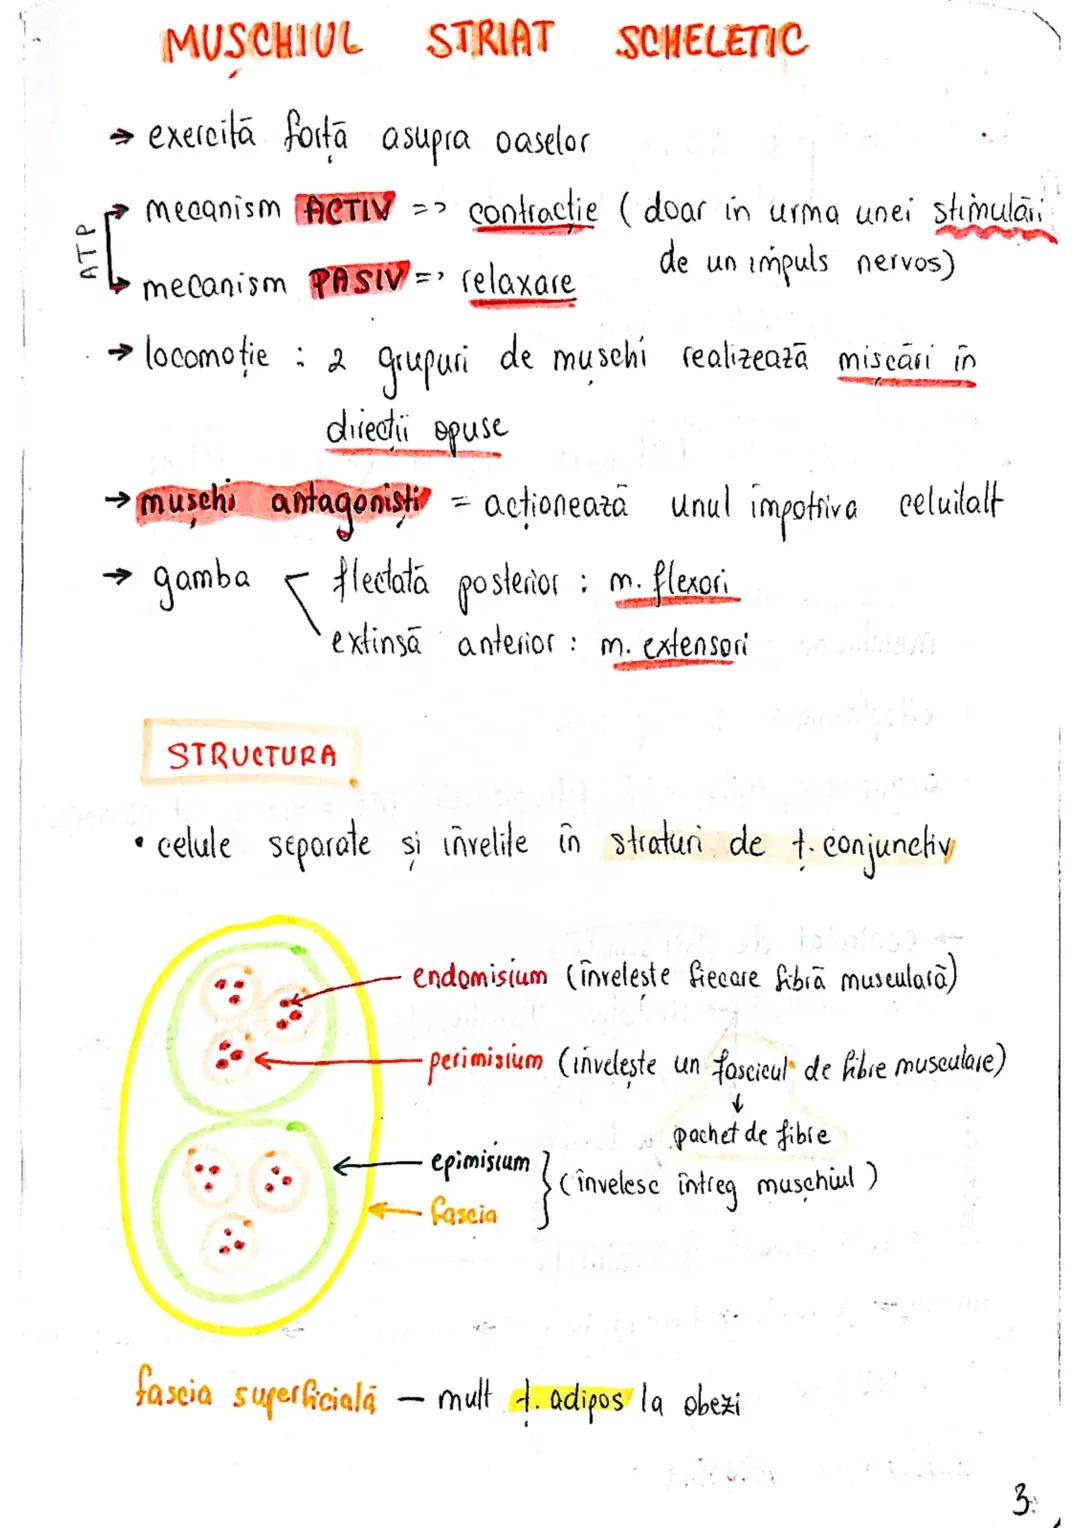 MUȘCHIUL STRIAT SCHELETIC
→ exercită forță asupra oaselor
ATP
→ mecanism ACTIV => contracție (doar în urma unei stimulări
de un impuls nervos)
→ mecanism PASIV => relaxare
→ locomoție : 2 grupuri de mușchi realizează mișcări în
direcții opuse
→ mușchi antagoniști = acționează unul împotriva celuilalt
→ gamba flectată posterior : m. flexori
extinsă anterior : m. extensori
STRUCTURA
• celule separate și învelite în straturi de ț. conjunctiv
endomisium (învelește fiecare fibră musculară)
perimisium (învelește un fascicul de fibre musculare)
↓
pachet de fibre
epimisium } (învelesc întreg mușchiul)
fascia
fascia superficială — mult ț. adipos la obezi
3.